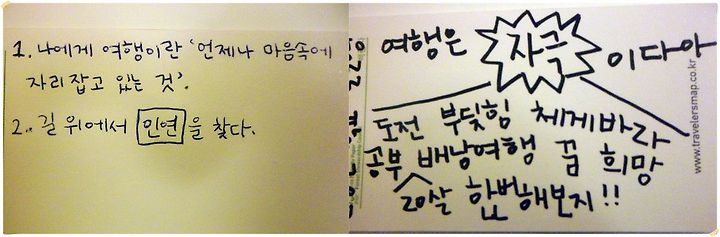 1. 나에게 여행이란 '언제나 마음속에
자리잡고 있는 것'.
2. 길 위에서 인연을 찾다.
여행은 자극 이다아
도전 부딪힘 체게바라
공부 배낭여행 꿈 희망
20살 한번해보지!!
www.travelersmap.co.kr